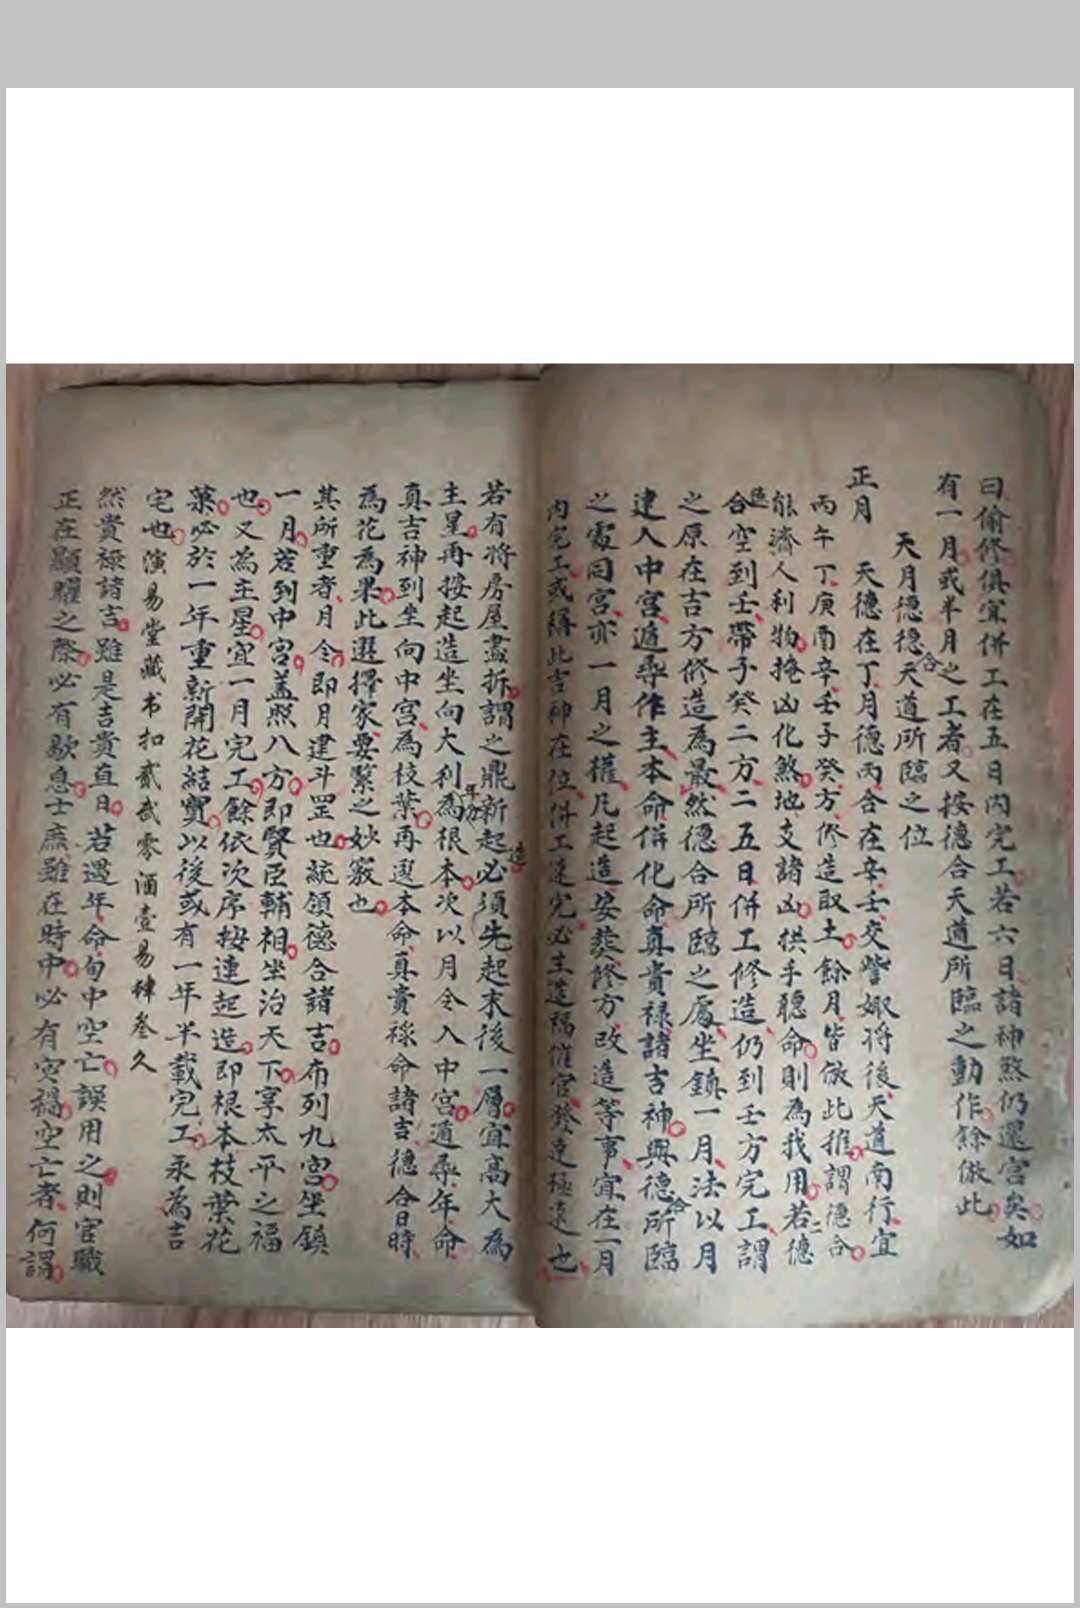 曰偷修俱宜併工在五日內完工若六日諸神煞仍還宮矣如
有一月或半月之工者又按德合天道所臨之動作餘倣此
天月德德合天道所臨之位
正月　天德在丁月德丙合在辛壬交訾娵將後天道南行宜
丙午丁庚酉辛壬子癸方修造取土餘月皆倣此推謂德合
能濟人利物掩凶化煞地支諸凶拱手聽命則為我用若二德
合空到壬帶子癸二方二五日併工修造仍到壬方完工謂
之原在吉方修造為最然德合所臨之處坐鎮一月法以月
建入中宮遁尋作主本命併化命真貴祿諸吉神與德合所臨
之處同宮亦一月之權凡起造安葬修方改造等事宜在一月
內完工或編此吉神在位併工速完必主造福催官發達極速也
若有將房屋盡拆謂之鼎新起造必須先起末後一層宜高大為
主星再按起造坐向大利年方為根本次以月令入中宮遁尋年命
真吉神到坐向中宮為枝葉再選本命真貴祿命諸吉德合日時
為花為果此選擇家要緊之妙竅也
其所重者月令即月建斗罡也統領德合諸吉布列九宮坐鎮
一月若到中宮蓋照八方即賢臣輔相坐治天下享太平之福
也又為主星宜一月完工餘依次序按連起造即根本枝葉花
菓必於一年重新開花結實以後或有一年半載完工永為吉
宅也演易堂藏书扣贰贰零酒壹易肆叁久
然貴祿諸吉雖是吉貴直日若遇年命旬中空亡誤用之則官職
正在顯耀之際必有歇息士庶雖在時中必有灾禍空亡者何謂